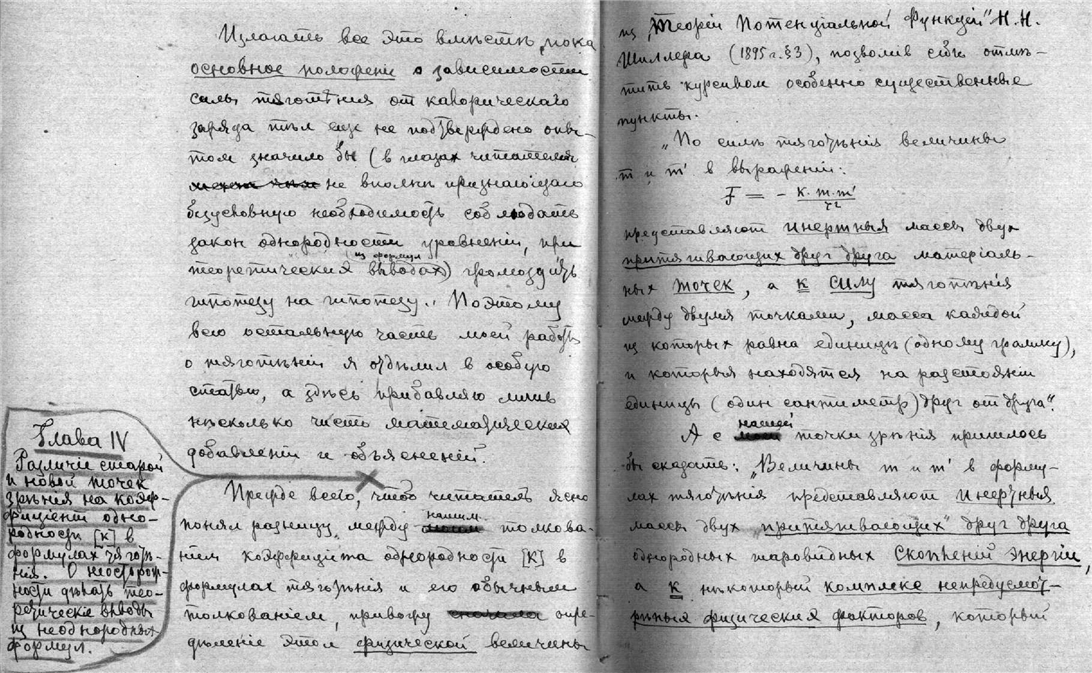 Излагать все это вместѣ, пока
основное положеніе о зависимости
силы тяготѣнія от калорическаго
заряда тѣл еще не подтверждено опы-
том значило бы (в глазах читателя
не вполнѣ признающаго
безусловную необходимость соблюдать
закон однородности уравненій, при
теоретических выводах из формул) громоздить
гипотезу на гипотезу. Поэтому
всю остальную часть моей работы
о тяготѣніи я отдѣлил в особую
статью, а здѣсь прибавляю лишь
нѣсколько чисто математических
добавленій и объясненій.
Глава IV
Различіе старой
и новой точек
зрѣнія на коэф-
фиціент одно-
родности [К] в
формулах тяготѣ-
нія. О неосторож-
ности дѣлать тео-
ретическіе выводы
из неоднородных
формул.
Прежде всего, чтоб читатель ясно
понял разницу между нашим толкова-
ніем коэффиціента однородности [К] в
формулах тяготѣнія и его обычным
толкованіем, привожу опре-
дѣленіе этой физической величины
из „Теоріи Потенціальной Функціи" Н.Н.
Шиллера (1895 г. §3), позволив себѣ отмѣ-
тить курсивом особенно существенные
пункты.
„По силѣ тяготѣнія величины
m и m' в выраженіи:
F = - К. m. m' / r²
представляют инертныя массы двух
притягивающих друг друга матеріаль-
ных точек, а К силу тяготѣнія
между двумя точками, масса каждой
из которых равна единицѣ (одному грамму),
и которыя находятся на разстояніи
единицы (один сантиметр) друг от друга".
А с нашей точки зрѣнія пришлось
бы сказать: „Величины m и m' в форму-
лах тяготѣнія представляют инертныя
массы двух „притягивающих" друг друга
однородных шаровидных скопленій энергіи,
а К нѣкоторый комплекс непредусмот-
рѣнных физических факторов, который